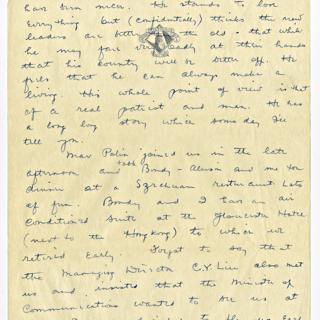 have been nice. He stands to lose
everything but (confidentially) thinks the new
leaders are better the old - that while
he may fare very badly at their hands
that his country will be better off. He
feels that he can always make a
living. His whole point of view is that
of a real patriot and man. He has
a long long story which some day I'll
tell you.
Max Polin joined us in the late
afternoon and took Bondy - Alison and me to
dinner at a Szechuan restaurant. Lots
of fun. Bondy and I have an air
conditioned suite at the Gloucester Hotel
(next to the Hongkong) to which we
retired early. Forgot to say that
the Managing Director C.Y. Liu also met
us and insisted that the Minister of
Communications wanted to see us at